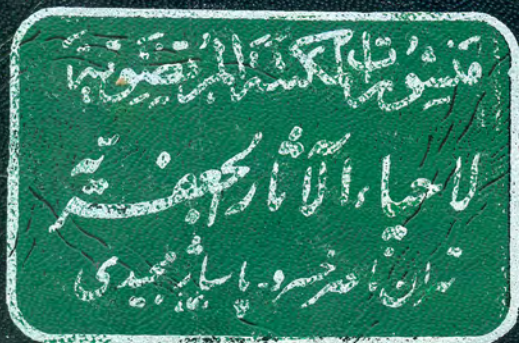 منشورات المكتبة المرتضوية
لاحیاء الآثار الجعفریة
تهران ناصر خسرو - پاساژ مجیدی